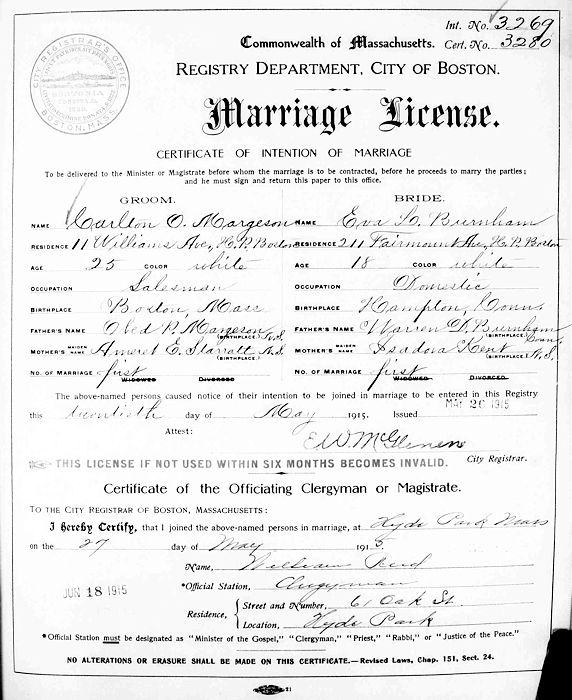 Int. No. 3269
Commonwealth of Massachusetts. Cert. No. 3280
REGISTRY DEPARTMENT, CITY OF BOSTON.
CITY REGISTRAR'S OFFICE
BOSTON, MASS.
Marriage License.
CERTIFICATE OF INTENTION OF MARRIAGE
To be delivered to the Minister or Magistrate before whom the marriage is to be contracted, before he proceeds to marry the parties;
and he must sign and return this paper to this office.
GROOM. BRIDE.
NAME Carlton O. Margeson NAME Eva L. Burnham
RESIDENCE 11 Williams Ave, H.P. Boston RESIDENCE 211 Fairmount Av, H.P. Boston
AGE 25 COLOR white AGE 18 COLOR white
OCCUPATION Salesman OCCUPATION Domestic
BIRTHPLACE Boston, Mass BIRTHPLACE Hampton, Conn.
FATHER'S NAME Obed P. Margeson (BIRTHPLACE) N.S. FATHER'S NAME Warren Burnham (BIRTHPLACE) Conn.
MOTHER'S MAIDEN NAME E. Starratt N.S. (BIRTHPLACE) MOTHER'S MAIDEN NAME Isadora Kent (BIRTHPLACE) N.S.
NO. OF MARRIAGE first WIDOWED DIVORCED NO. OF MARRIAGE first WIDOWED DIVORCED
The above-named persons caused notice of their intention to be joined in marriage to be entered in this Registry
this twentieth day of May 1915. Issued MAY 26 1915
Attest: E.W. McGlenen
City Registrar.
THIS LICENSE IF NOT USED WITHIN SIX MONTHS BECOMES INVALID.
Certificate of the Officiating Clergyman or Magistrate.
TO THE CITY REGISTRAR OF BOSTON, MASSACHUSETTS:
I hereby Certify, that I joined the above-named persons in marriage, at Hyde Park Mass
on the 27 day of May 1915.
Name, William Reid
JUN 18 1915
*Official Station, Clergyman
Residence, Street and Number, 61 Oak St.
Location, Hyde Park
*Official Station must be designated as "Minister of the Gospel," "Clergyman," "Priest," "Rabbi," or "Justice of the Peace."
NO ALTERATIONS OR ERASURE SHALL BE MADE ON THIS CERTIFICATE.—Revised Laws, Chap. 151, Sect. 24.